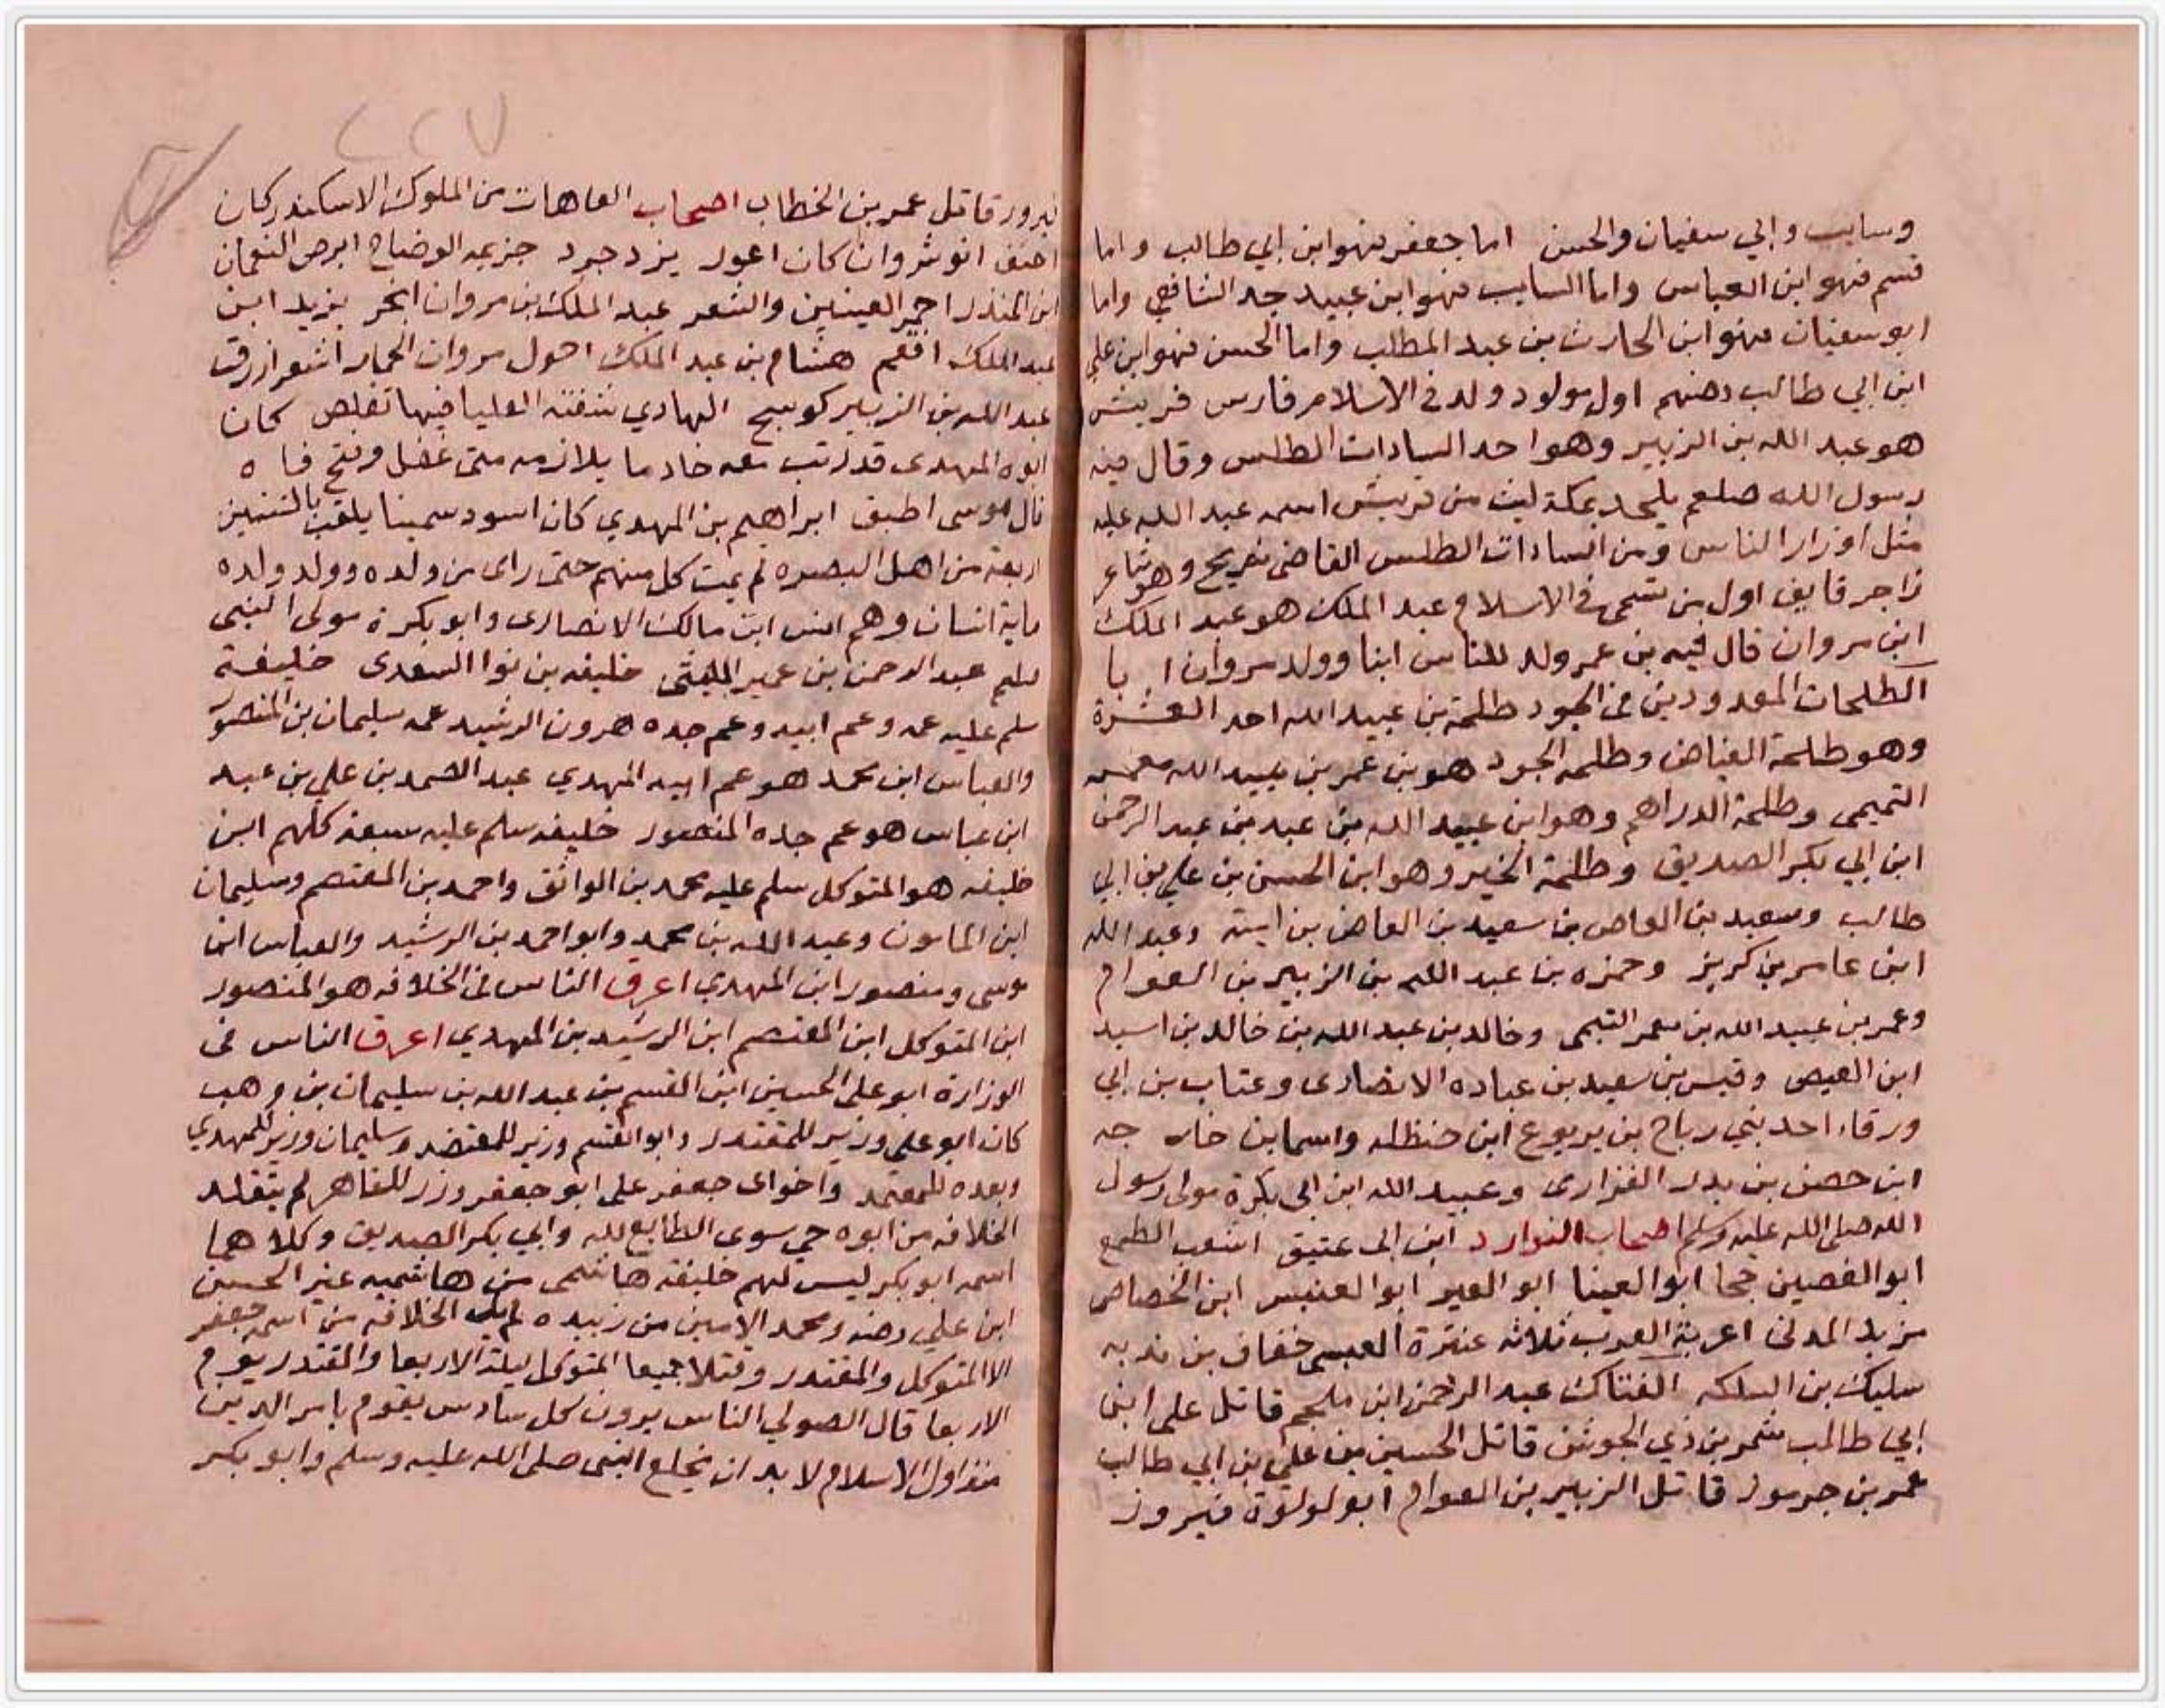 وسايب وابي سفيان والحسن اما جعفر فهو ابن ابي طالب واما
قسم فهو ابن العباس واما السايب فهو ابن عبيد جد الشافعي واما
ابو سفيان فهو ابن الحارث بن عبد المطلب واما الحسن فهو ابن علي
ابن ابي طالب رضهم اول مولود ولد في الاسلام فارس قريش
هو عبد الله بن الزبير وهو احد السادات الطلس وقال فيه
رسول الله صلعم يلحد بمكة ليث من قريش اسمه عبد الله عليه
مثل اوزار الناس ومن السادات الطلس القاضي شريح وهو شاعر
زاجر قايف اول من تسمى في الاسلام عبد الملك هو عبد الملك
ابن مروان قال فيه بن عمر ولد للناس ابنا وولد مروان ابا
الطلحات المعدودين في الجود طلحة بن عبيد الله احد العشرة
وهو طلحة الفياض وطلحة الجود هو بن عمر بن عبيد الله معمر
التميمي وطلحة الدراهم وهو ابن عبيد الله بن عبد بن عبد الرحمن
ابن ابي بكر الصديق وطلحة الخير وهو ابن الحسن بن علي بن ابي
طالب وسعيد بن العاص بن سعيد بن العاص بن امية وعبد الله
ابن عامر بن كريز وحمزه بن عبد الله بن الزبير بن العوام
وعمر بن عبيد الله بن معمر التيمي وخالد بن عبد الله بن خالد بن اسيد
ابن العيص وقيس بن سعيد بن عباده الانصاري وعتاب بن ابي
ورقاء احد بني رباح بن يربوع ابن حنظله واسما بن خارجه
ابن حصن بن بدر الفزاري وعبيد الله ابن ابي بكرة مولى رسول
الله صلى الله عليه وسلم اصحاب النوارد ابن ابي عتيق اشعب الطمع
ابو الغصين جحا ابو العينا ابو العبر ابو العنبس ابن الخصاص
مزبد المدني اعربة العرب ثلاثه عنترة العبسي خفاف بن ندبه
سليك بن السلكه الفتاك عبد الرحمن ابن ملجم قاتل علي ابن
ابي طالب شمر بن ذي الجوشن قاتل الحسين بن علي بن ابي طالب
عمر بن جرموز قاتل الزبير بن العوام ابو لولوة فيروز
٢٢٧
فيروز قاتل عمر بن الخطاب اصحاب العاهات من الملوك الاسكندر كان
احنف انوشروان كان اعور يزدجرد جزيمه الوضاح ابرص النعمان
ابن المنذر احمر العينين والشعر عبد الملك بن مروان ابخر يزيد ابن
عبد الملك افقم هشام بن عبد الملك احول مروان الحمار اشعر ازرق
عبد الله بن الزبير كوسج الهادي شفته العليا فيها تقلص كان
ابوه المهدي قد رتب معه خادما يلازمه متى غفل وفتح فاه
قال موسى اطبق ابراهيم بن المهدي كان اسود سمينا يلقب بالتنين
اربعة من اهل البصره لم يمت كل منهم حتى راى من ولده وولد ولده
ماية انسان وهم انس ابن مالك الانصاري وابو بكرة مولى النبي
صلعم عبد الرحمن ابن عمير الليثي خليفه بن نوا السعدي خليفة
سلم عليه عمه وعم ابيه وعم جده هرون الرشيد عمه سليمان بن المنصور
والعباس ابن محمد هو عم ابيه المهدي عبد الصمد بن علي بن عبد
ابن عباس هو عم جده المنصور خليفه سلم عليه سبعة كلهم ابن
خليفه هو المتوكل سلم عليه محمد بن الواثق واحمد بن المعتصم وسليمان
ابن المامون وعبد الله بن محمد وابو احمد بن الرشيد والعباس ابن
موسى ومنصور ابن المهدي اعرق الناس في الخلافه هو المنصور
ابن المتوكل ابن المعتصم ابن الرشيد بن المهدي اعرق الناس في
الوزارة ابو علي الحسين ابن القسم بن عبد الله بن سليمان بن وهب
كان ابو علي وزير للمقتدر وابو القسم وزير للمعتضد وسليمان وزير للمهدي
وبعده للمعتمد واخواى جعفر علي ابو جعفر وزر للقاهر لم يتقلد
الخلافه من ابوه حي سوى الطايع لله وابي بكر الصديق وكلاهما
اسمه ابو بكر ليس لهم خليفة هاشمي من هاشميه غير الحسن
ابن علي رضه ومحمد الامين من زبيده لم يلي الخلافه من اسمه جعفر
الا المتوكل والمقتدر وقتلا جميعا المتوكل ليلة الاربعا والمقتدر يوم
الاربعا قال الصولي الناس يرون كل سادس يقوم بامر الدين
منذ اول الاسلام لابد ان يخلع النبي صلى الله عليه وسلم وابو بكر